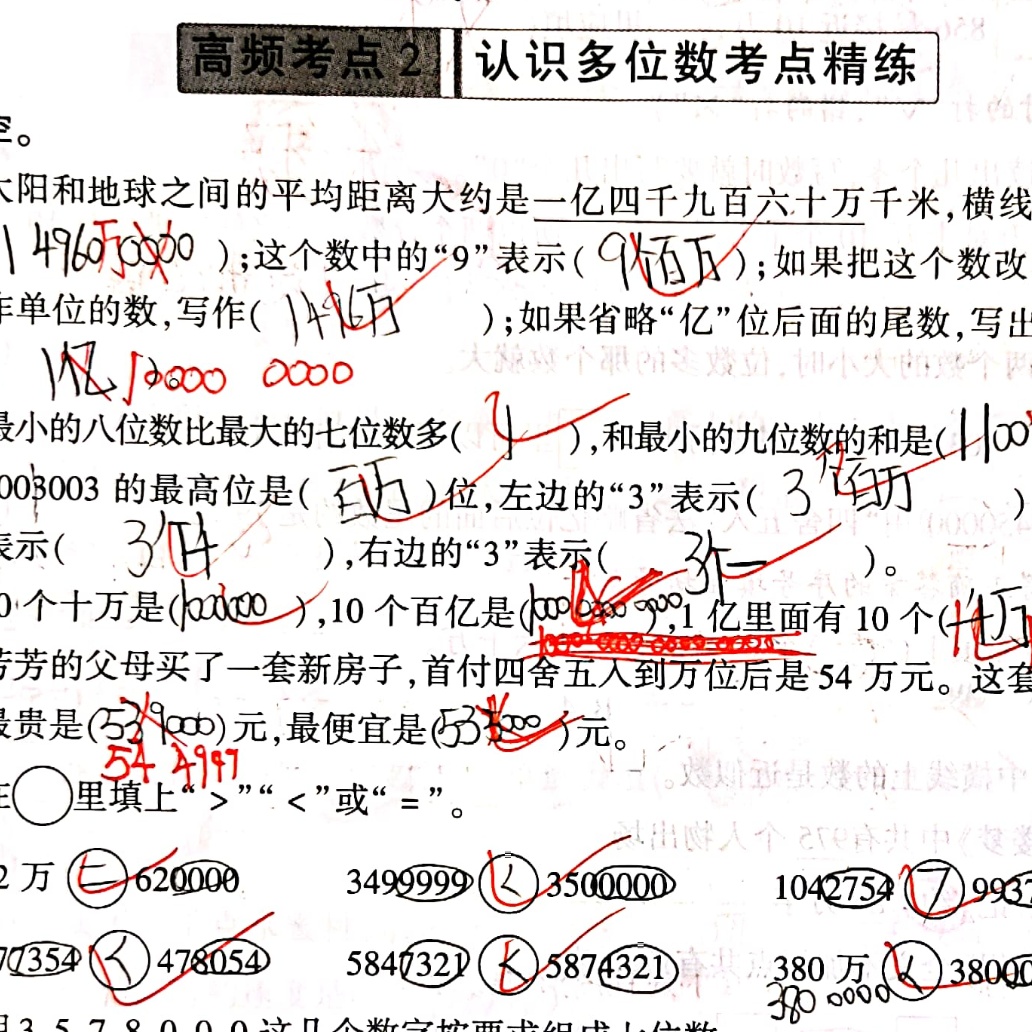 高频考点2 认识多位数考点精练
空。
太阳和地球之间的平均距离大约是一亿四千九百六十万千米,横线
14960万0000 );这个数中的“9”表示( 9个百万 );如果把这个数改
作单位的数,写作( 1496万 );如果省略“亿”位后面的尾数,写出
1亿 )。0000 0000
最小的八位数比最大的七位数多( 1 ),和最小的九位数的和是( 1100
003003 的最高位是( 百万 )位,左边的“3”表示( 3个百万 )
表示( 3个千 ),右边的“3”表示( 3个一 )。
0 个十万是( 1000000 ),10 个百亿是( ),1 亿里面有 10 个( 千万
芳芳的父母买了一套新房子,首付四舍五入到万位后是 54 万元。这套
最贵是( 539000 )元,最便宜是( 535000 )元。
54 4999
在○里填上“ > ”“ < ”或“ = ”。
2 万 = 620000 3499999 < 3500000 1042754 > 9937
77354 < 478054 5847321 < 5874321 380 万 < 38000
380 0000
用 3、5、7、8、0、0、0 这几个数字按要求组成七位数